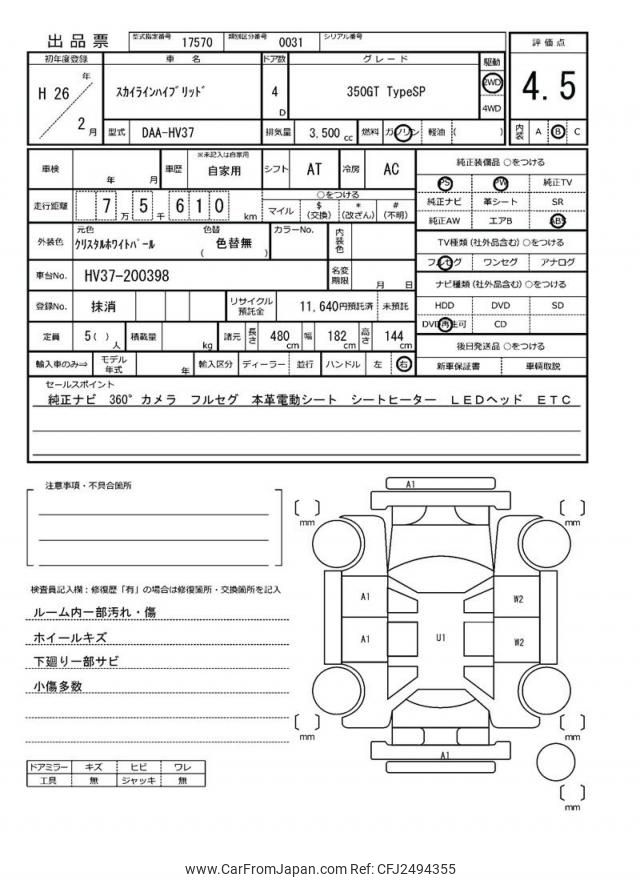 出品票 型式指定番号 17570 類別区分番号 0031 シリアル番号
初年度登録 車 名 ドア数 グレード 駆動 評価点
H 26 年 2 月 スカイラインハイブリッド 4 D 350GT TypeSP 2WD 4WD 4.5
型式 DAA-HV37 排気量 3,500 cc 燃料 ガソリン 軽油 ( ) 内装 A B C
車検 年 月 車歴 ※未記入は自家用 自家用 シフト AT 冷房 AC 純正装備品 ○をつける
PS PW 純正TV
走行距離 7 万 5 千 6 1 0 km ○をつける 純正ナビ 革シート SR
マイル $ (交換) * (改ざん) # (不明) 純正AW エアB ABS
外装色 元色 クリスタルホワイトパール 色替 ( 色替無 ) カラーNo. 内装色 TV種類 (社外品含む) ○をつける
フルセグ ワンセグ アナログ
車台No. HV37-200398 名変期限 月 日 ナビ種類 (社外品含む) ○をつける
登録No. 抹消 リサイクル預託金 11,640円預託済 未預託 HDD DVD SD
DVD再生可 CD
定員 5( ) 人 積載量 kg 諸元 長さ 480 cm 幅 182 cm 高さ 144 cm 後日発送品 ○をつける
輸入車のみ⇒ モデル年式 年 輸入区分 ディーラー 並行 ハンドル 左 右 新車保証書 車輌取説
セールスポイント
純正ナビ 360°カメラ フルセグ 本革電動シート シートヒーター LEDヘッド ETC
注意事項・不具合箇所
検査員記入欄：修復歴「有」の場合は修復箇所・交換箇所を記入
ルーム内一部汚れ・傷
ホイールキズ
下廻り一部サビ
小傷多数
ドアミラー キズ ヒビ ワレ
工具 無 ジャッキ 無
A1
mm mm
A1 W2
A1 U1 W2
mm mm
A1
mm
www.CarFromJapan.com Ref: CFJ2494355